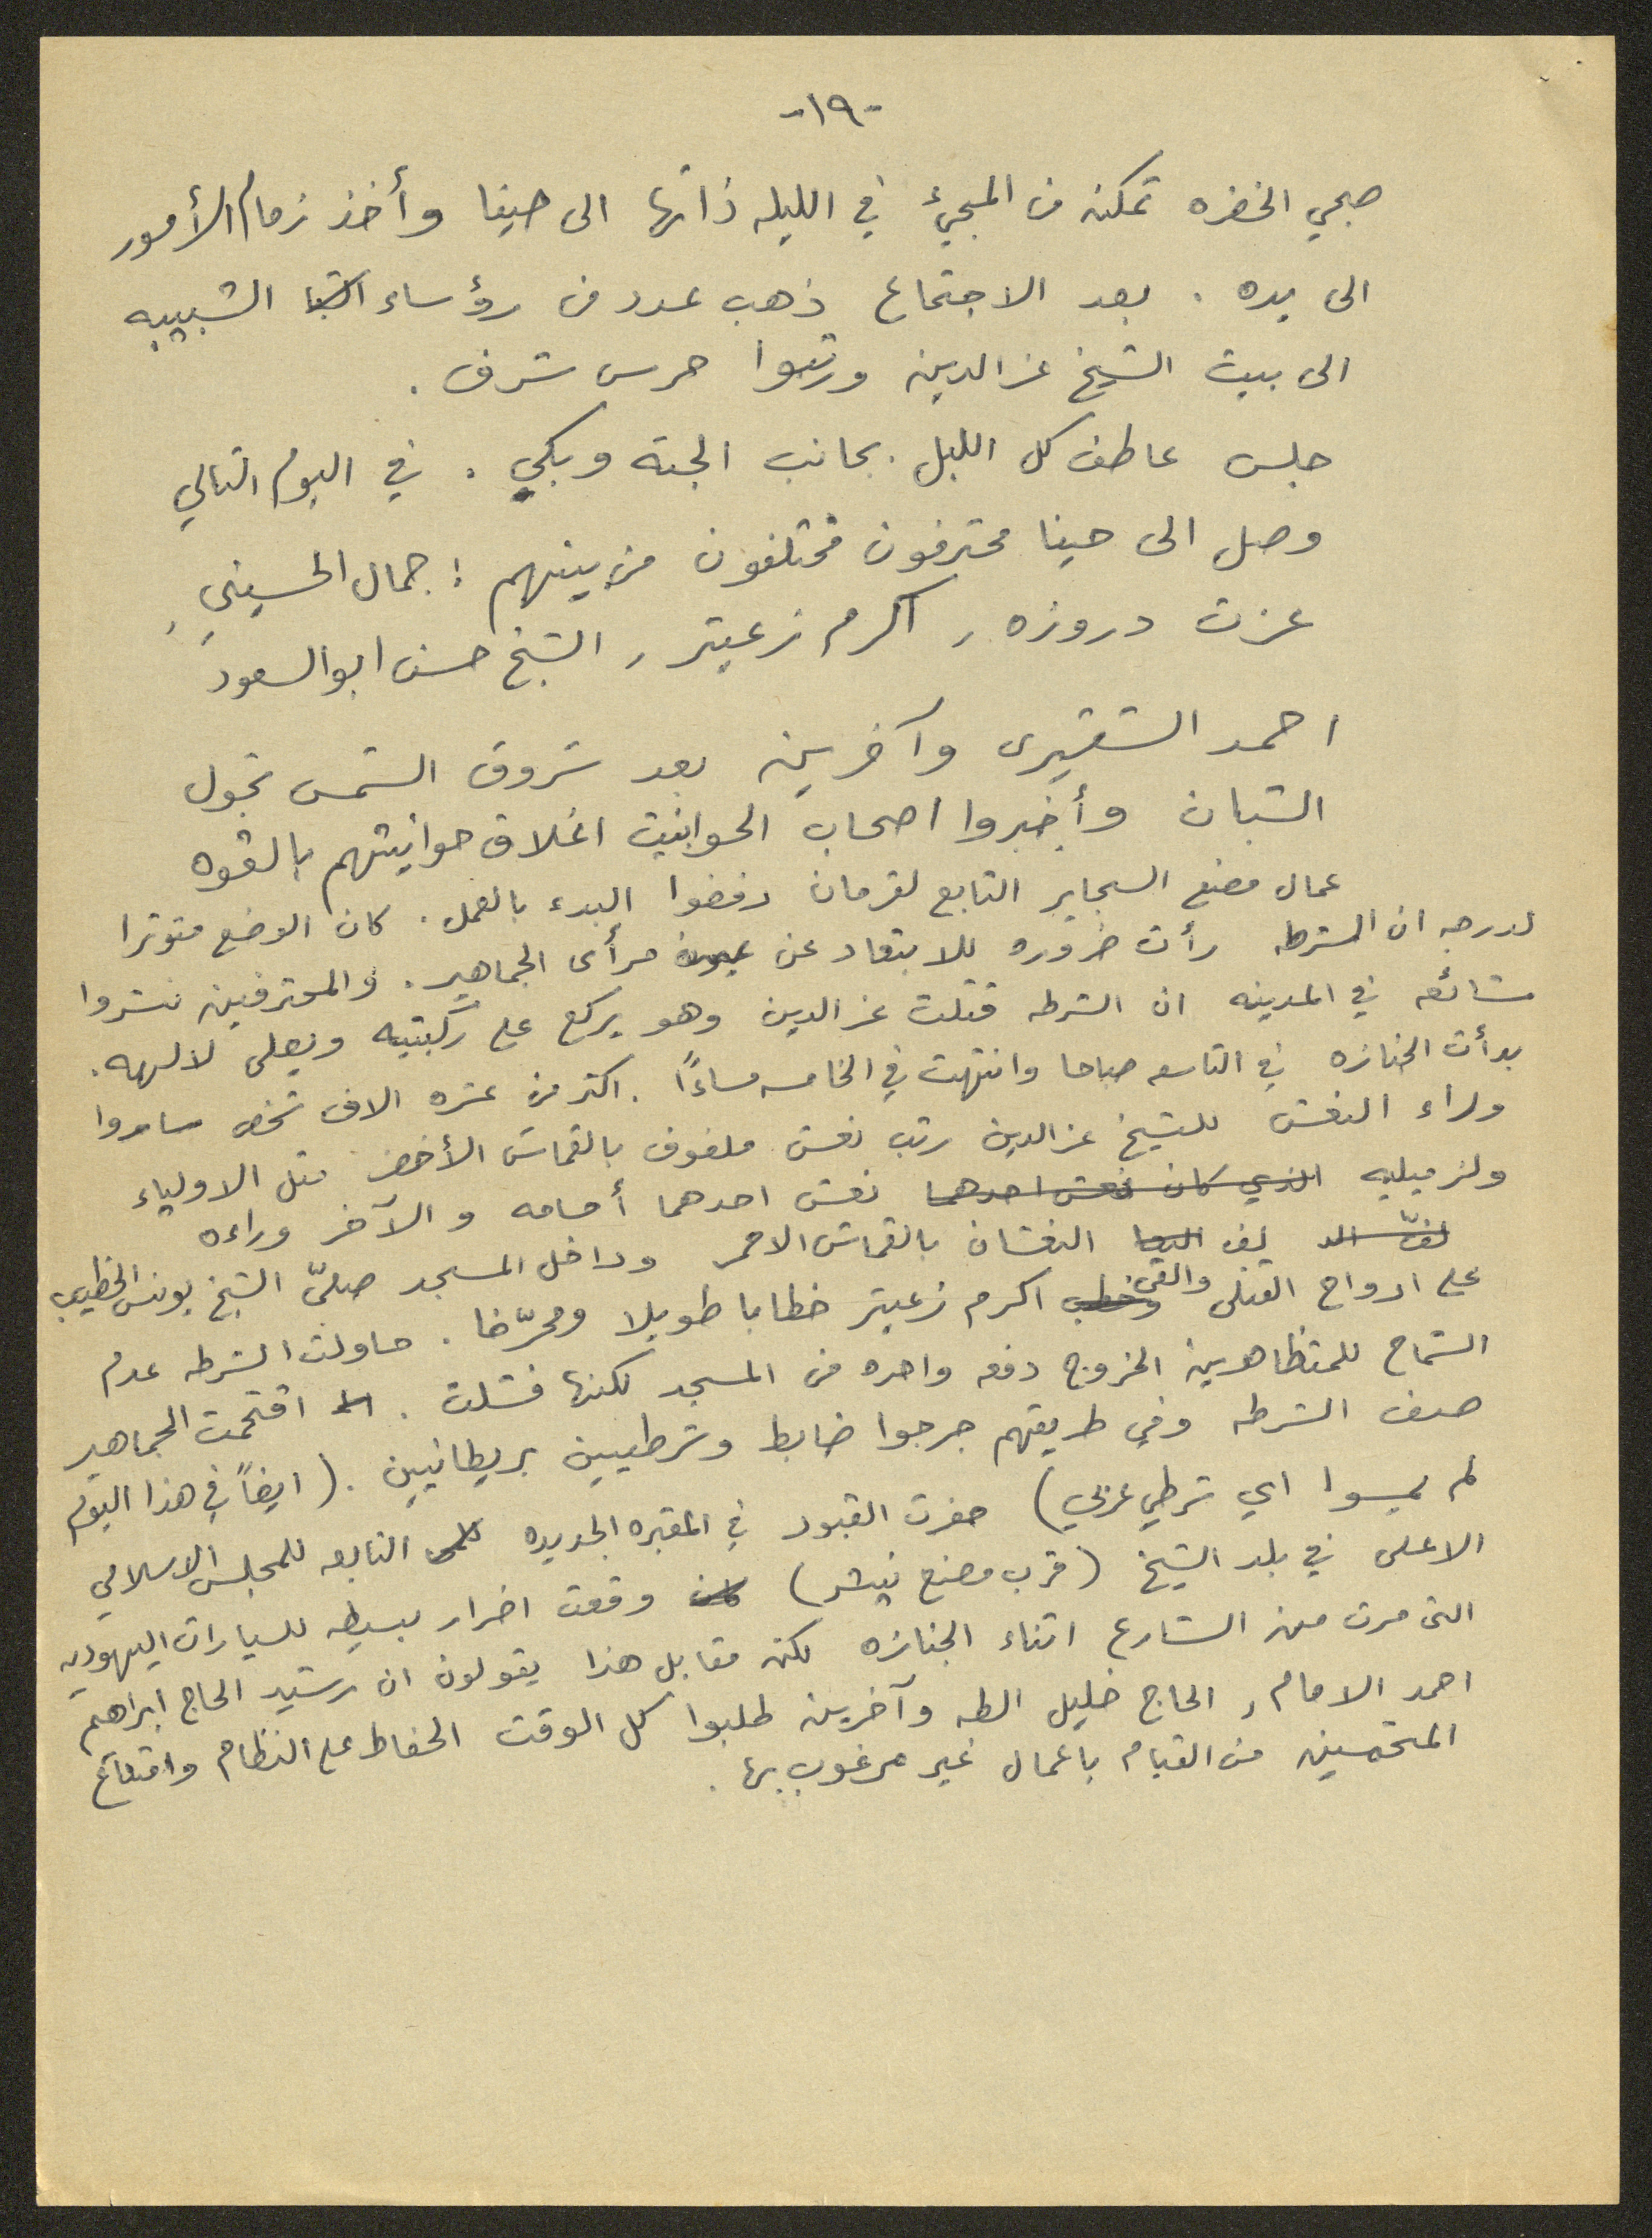 -١٩-
صبحي الخضره تمكن من المجيئ في الليله ذاتها الى حيفا وأخذ زمام الأمور
الى يده . بعد الاجتماع ذهب عدد من رؤساء الشبيبه
الى بيت الشيخ عز الدين ورتبوا حرس شرف .
جلس عاطف كل الليل بجانب الجثه وبكي . في اليوم التالي
وصل الى حيفا محترفون مختلفون من بينهم : جمال الحسيني ,
عزت دروزه , اكرم زعيتر , الشيخ حسن ابو السعود ,
احمد الشقيرى وآخرين بعد شروق الشمس تجول
الشبان وأخبروا اصحاب الحوانيت اغلاق حوانيتهم بالقوه
عمال مصنع السجاير التابع لقرمان رفضوا البدء بالعمل . كان الوضع متوترا
لدرجه ان الشرطه رأت ضروره للابتعاد عن عيون مرأى الجماهير . والمحترفين نشروا
شائعه في المدينه ان الشرطه قتلت عز الدين وهو يركع على ركبتيه ويصلى لالهه .
بدأت الجنازه في التاسعه صباحا وانتهت في الخامسه مساءً . اكثر من عشره الاف شخص ساروا
وراء النعش للشيخ عز الدين رتب نعش ملفوف بالقماش الأخضر مثل الاولياء
ولزميليه الذي كان نعش احدهما نعش احدهما أمامه و الآخر وراءه
لفّ الد لف النعشان بالقماش الاحمر وداخل المسجد صلىّ الشيخ يونس الخطيب
على ارواح القتلى والقى وخطب اكرم زعيتر خطابا طويلا ومحرّضا . حاولت الشرطه عدم
السماح للمتظاهرين الخروج دفعه واحده من المسجد لكنها فشلت . اقتحمت الجماهير
صف الشرطه وفي طريقهم جرجوا ضابط وشرطيين بريطانيين . ( ايضاً في هذا اليوم
لم يمسوا اي شرطي عربي ) حفرت القبور في المقبره الجديده التابعه للمجلس الاسلامي
الاعلى في بلد الشيخ ( قرب مصنع نيشر ) كان وقعت اضرار بسيطه للسيارات اليهوديه
التى مرت من الشارع اثناء الجنازه لكن مقابل هذا يقولون ان رشيد الحاج ابراهيم
احمد الامام , الحاج خليل الطه وآخرين طلبوا كل الوقت الحفاظ على النظام وامتناع
المتحمسين من القيام باعمال غير مرغوب بها .